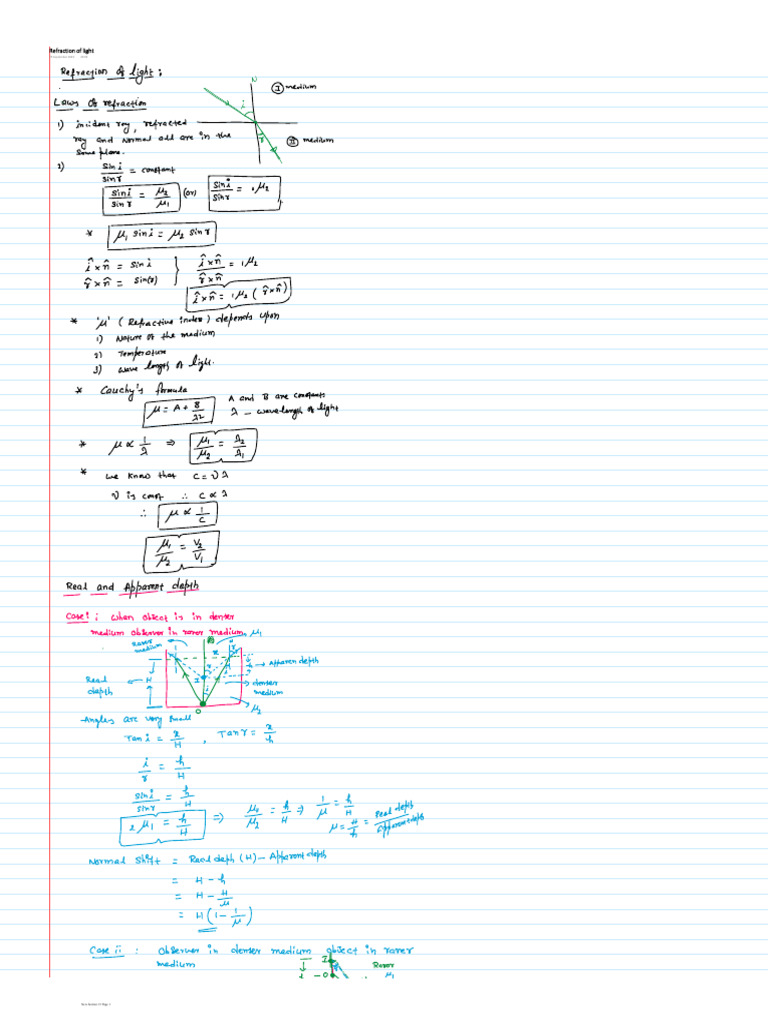 Refraction of light
Refraction of light :
Laws of refraction
N
i
r
I medium
II medium
1) incident ray, refracted
ray and Normal all are in the
same plane.
2) sin i / sin r = constant
sin i / sin r = μ2 / μ1 (or) sin i / sin r = 1μ2
* μ1 sin i = μ2 sin r
î × n̂ = sin i } î × n̂ / r̂ × n̂ = 1μ2
r̂ × n̂ = sin(r)
î × n̂ = 1μ2 ( r̂ × n̂ )
* 'μ' ( Refractive index ) depends upon
1) Nature of the medium
2) Temperature
3) wave length of light.
* Cauchy's formula
μ = A + B/λ2
A and B are constants
λ – wavelength of light
* μ ∝ 1/λ ⇒ μ1/μ2 = λ2/λ1
* we know that C = νλ
ν is const ∴ C ∝ λ
∴ μ ∝ 1/C
μ1/μ2 = V2/V1
Real and Apparent depth
Case i : when object is in denser
medium observer in rarer medium
Rarer medium
μ1
x
r
i
I
O
h
Apparen depth
Real depth
H
denser medium
μ2
Angles are very small
Tan i = x/H , Tan r = x/h
i/r = h/H
sin i / sin r = h/H
2μ1 = h/H ⇒ μ0/μ2 = h/H ⇒ 1/μ = h/H
μ = H/h = Real depth / Apparent depth
Normal shift = Real deph (H) – Apparent depth
= H – h
= H – H/μ
= H ( 1 – 1/μ )
Case ii : Observer in denser medium object in rarer
medium
I
O
Rarer
μ1